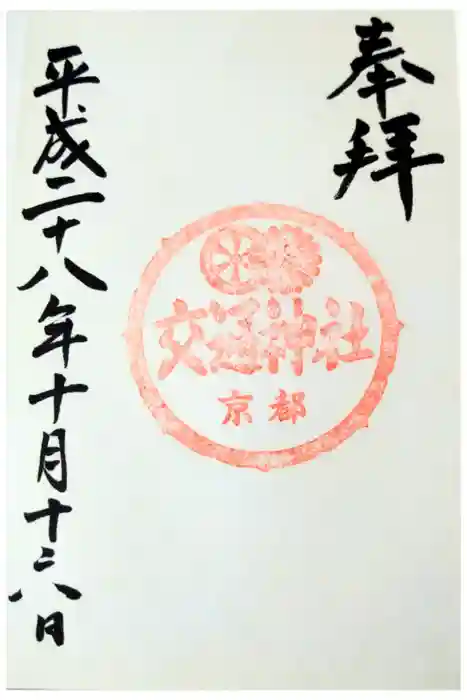 奉拜
交通神社
京都
平成二十八年十月十六日